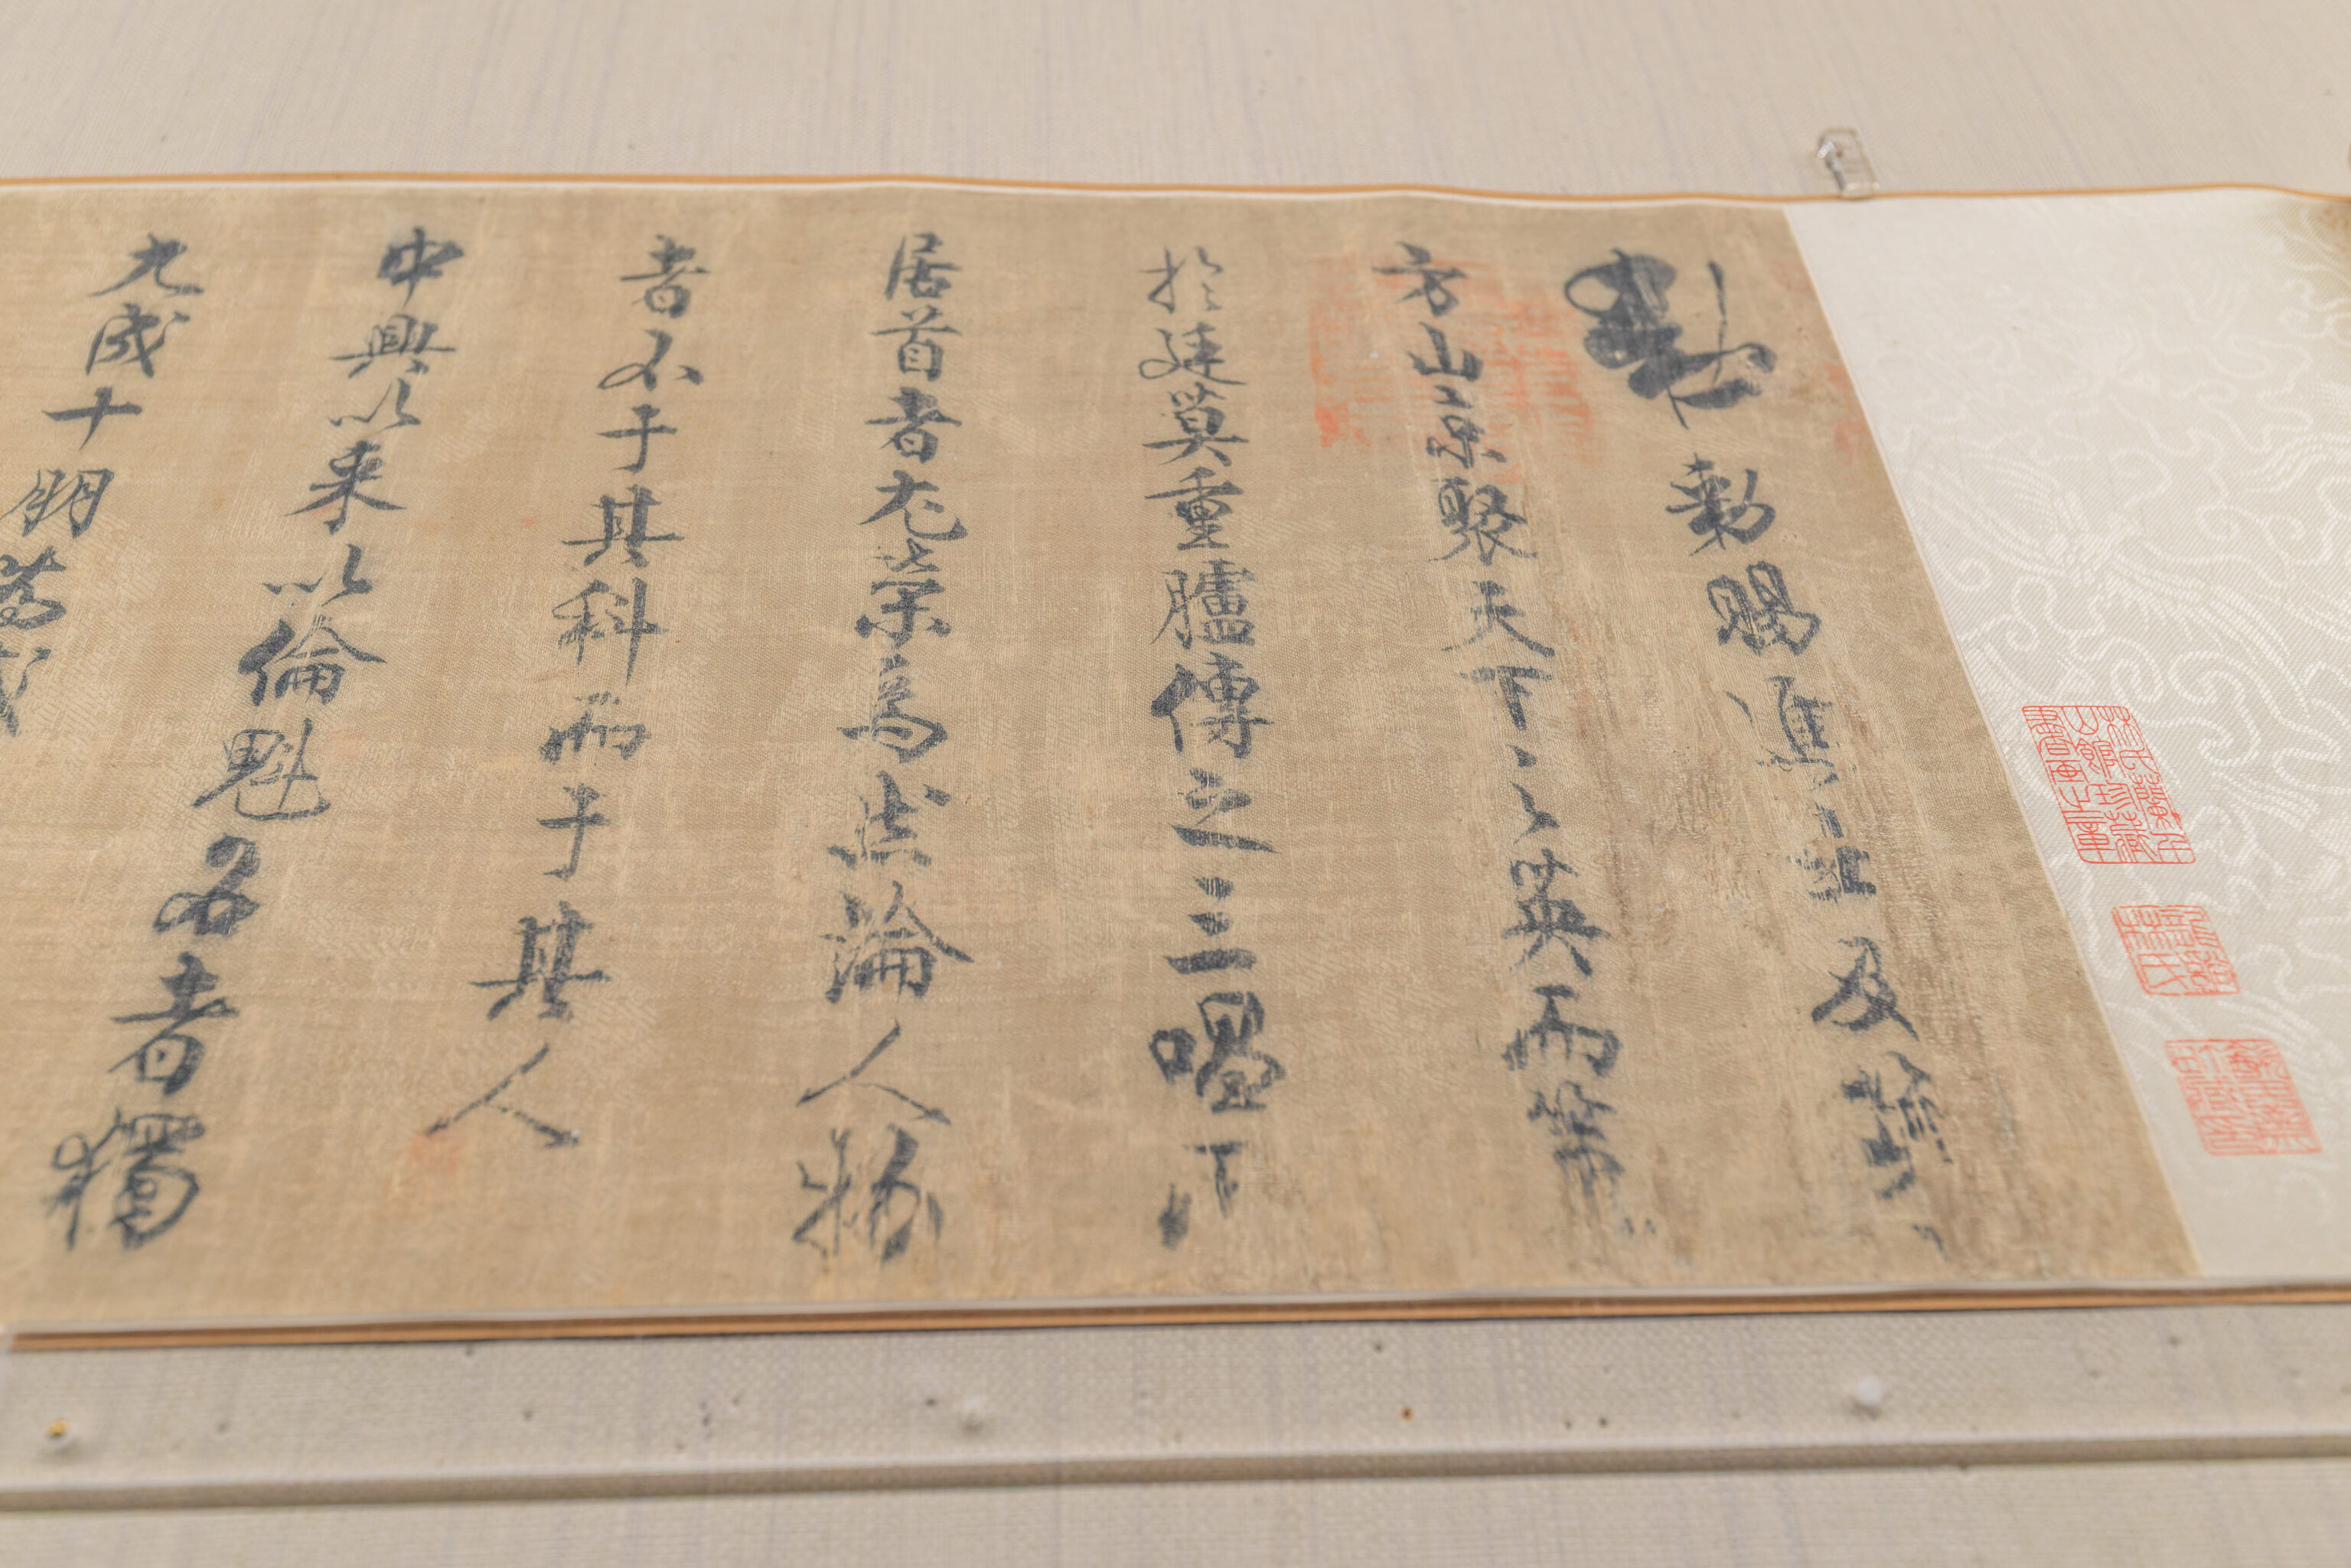 勅賜進士及第
方山京聚天下之英而策
於廷莫重臚傳之三唱而
居首者尤榮焉然論人物
者不于其科而于其人
中興以来以倫魁名者獨
九成十朋爲